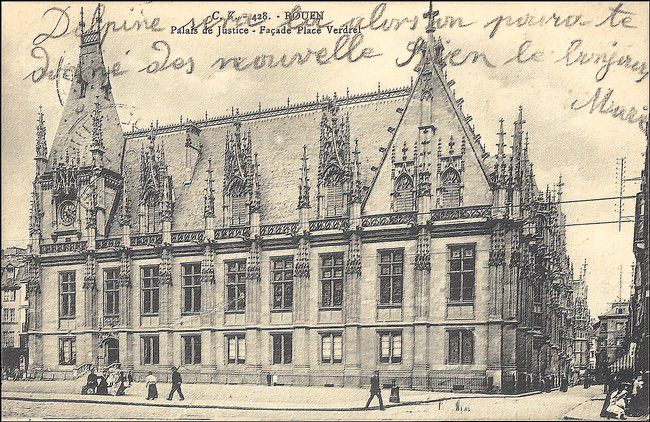 C. K. 428. - ROUEN
Palais de Justice - Façade Place Verdrel
Delpine sera la alors on poura te
donné des nouvelle Rien le bonjour